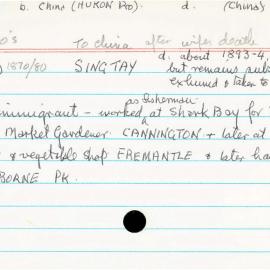 b. China (HUKON Pro). d. (China)
o's To China after wifes death
d. about 1893-4,
1870/80 SING TAY but remains sub
exhumed & taken to
as fisherman
immigrant - worked ^ at Shark Bay for
Market Gardener CANNINGTON & later at
& vegetable shop FREMANTLE & later ha
BORNE PK.